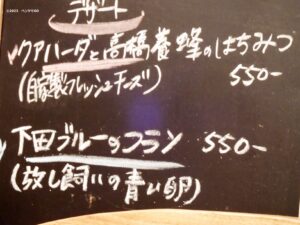 ©2023 ベンヤ160
デザート
クアハーダと高橋養蜂のはちみつ
(自家製フレッシュチーズ) 550-
下田ブルーのフラン 550-
(放し飼いの青い卵)